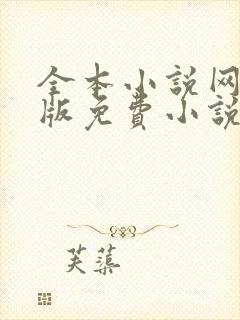 全本小说网
版免费小说
芙蕖